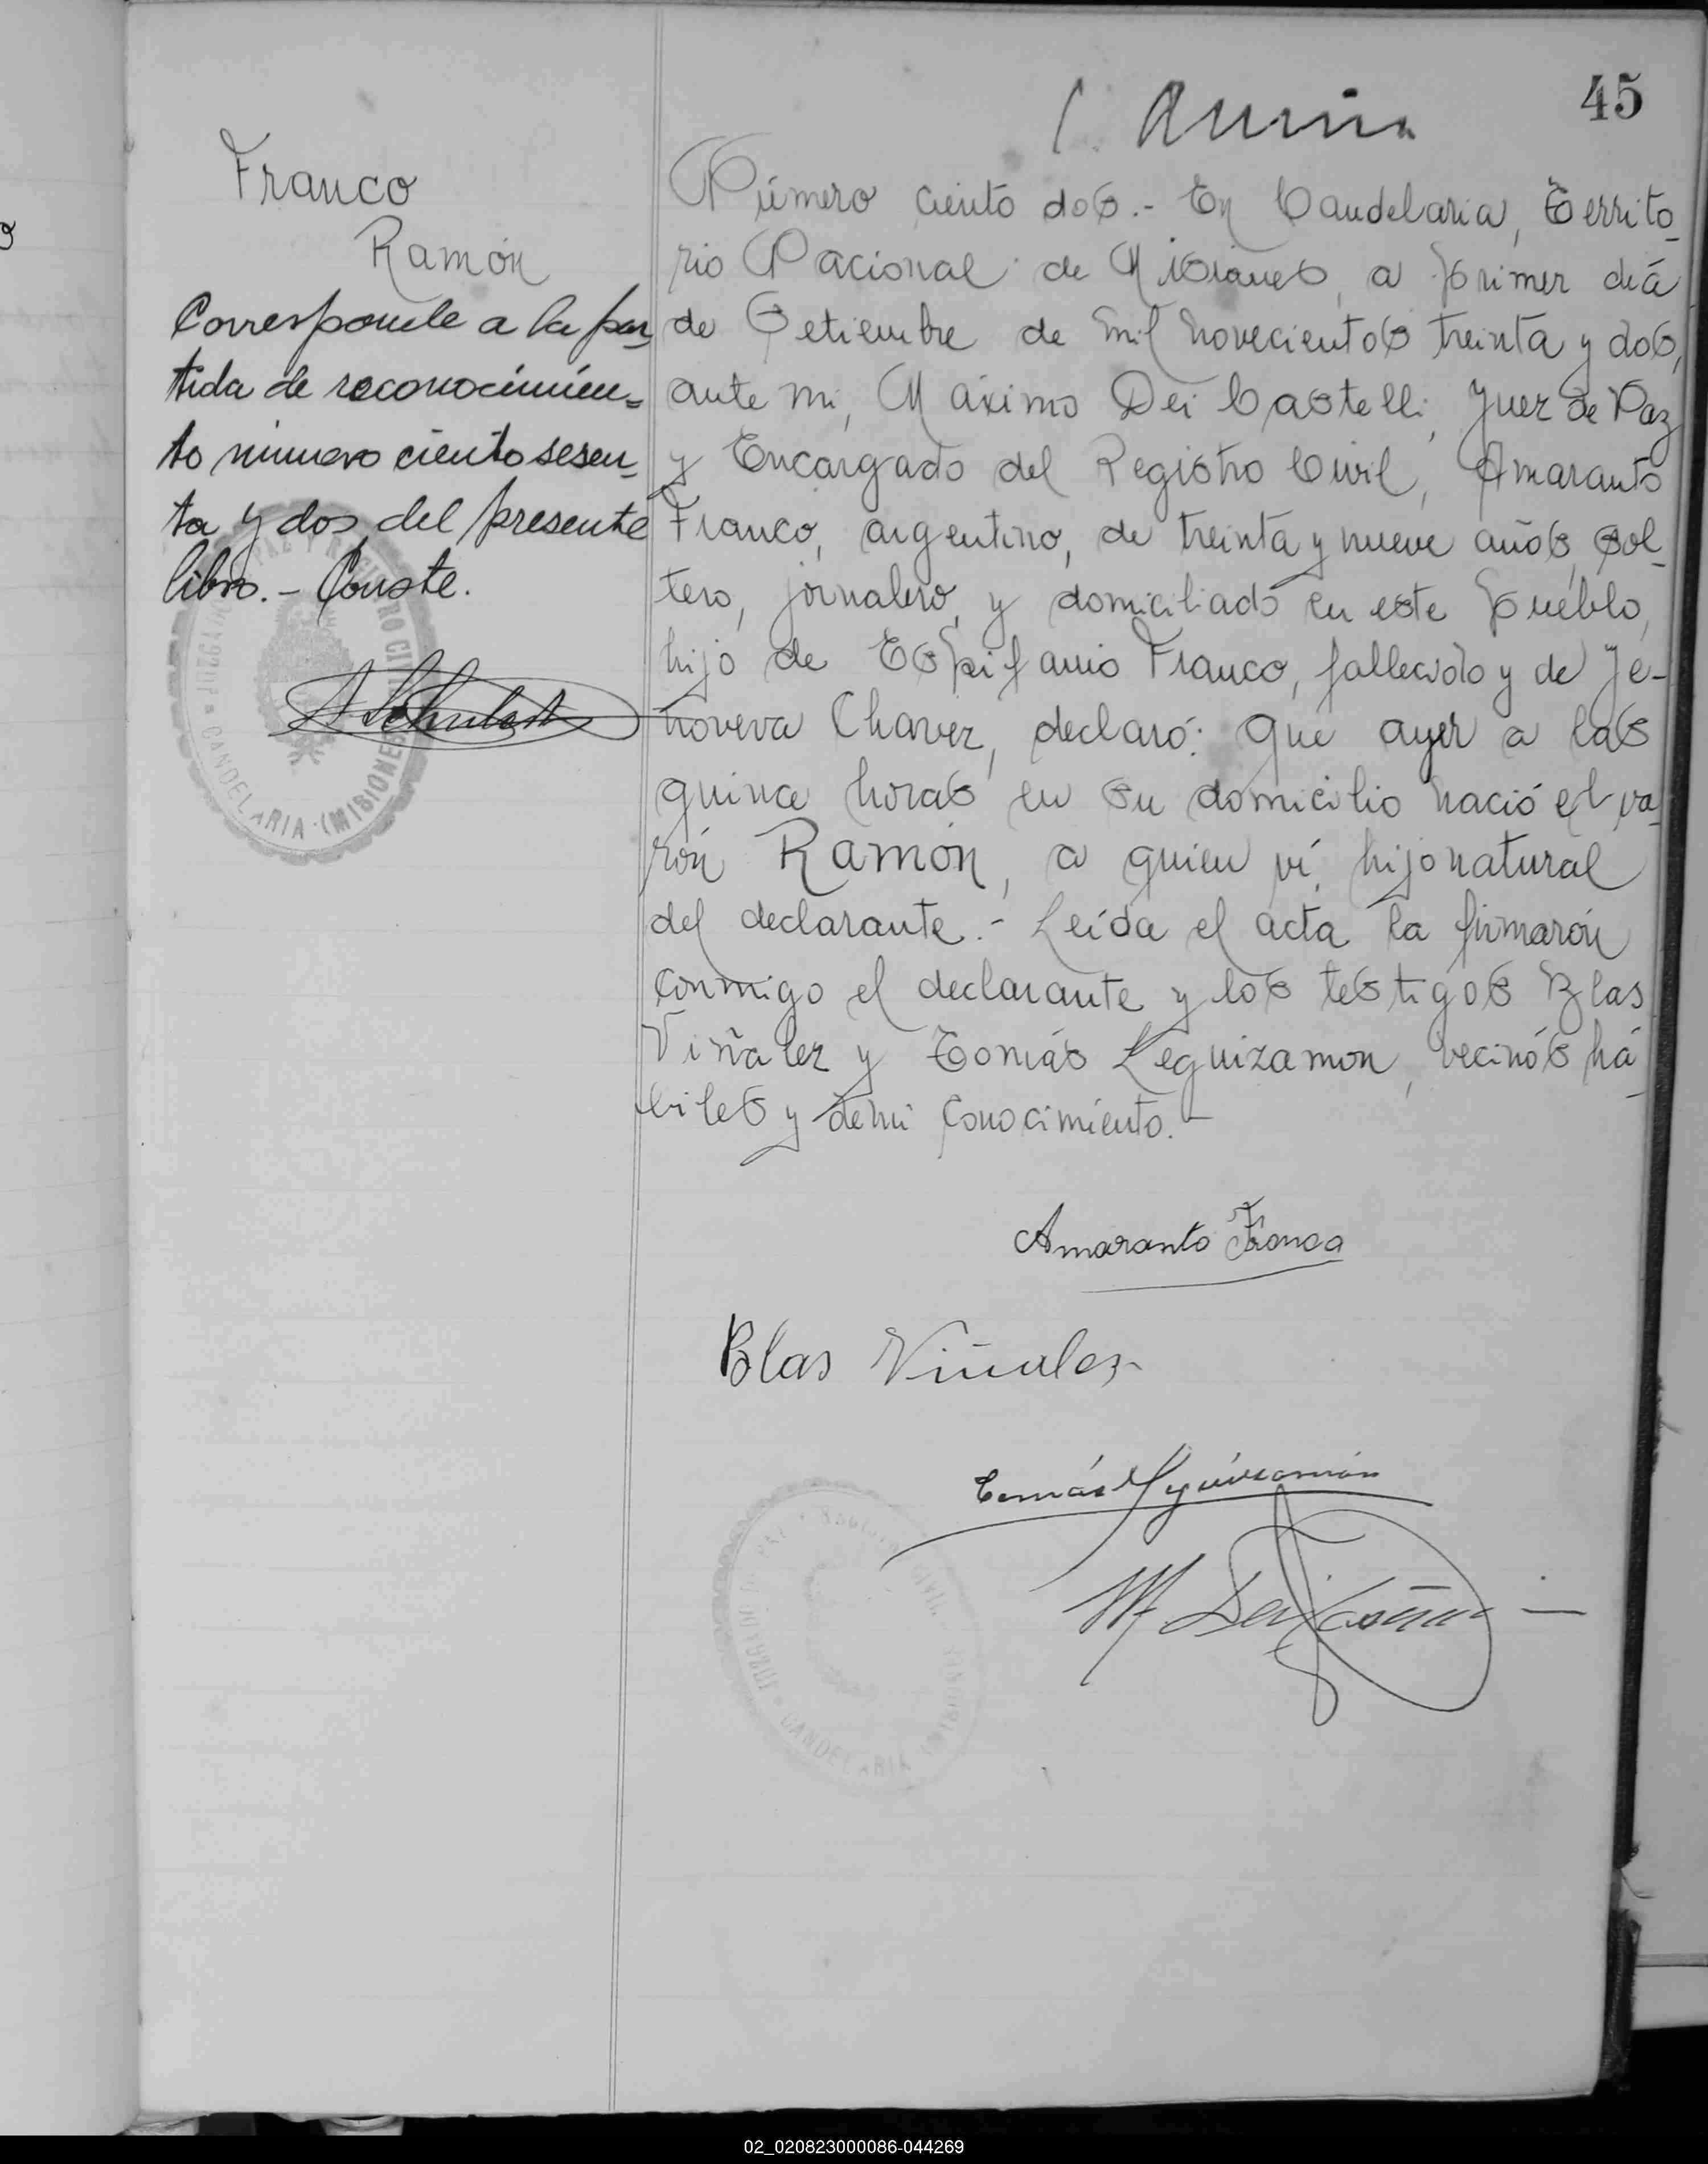 45
Franco
Ramón
Corresponde a la par_
tida de reconocimien=
to número ciento sesen_
ta y dos del presente
libro.- Conste.
Número ciento dos.- En Candelaria, Territo_
rio Nacional de Misiones, a primer día
de Setiembre de mil novecientos treinta y dos,
ante mi, Máximo Dei Castelli, Juez de Paz
y Encargado del Registro Civil, Amaranto
Franco, argentino, de treinta y nueve años, sol_
tero, jornalero, y domiciliado en este pueblo,
hijo de Espifanio Franco, fallecido y de Je-
noveva Chavez, declaró: Que ayer a las
quince horas en su domicilio nació el va_
rón Ramón, a quien ví, hijo natural
del declarante.- Leída el acta la firmarón
conmigo el declarante y los testigos Blas
Viñalez y Tomás Leguizamon, vecinos há_
biles y de mi conocimiento.-
Amaranto Franco
Blas Viñalez
Tomás Leguizamón
M Dei Castelli
CANDELARIA (MISIONES)
02_020823000086-044269